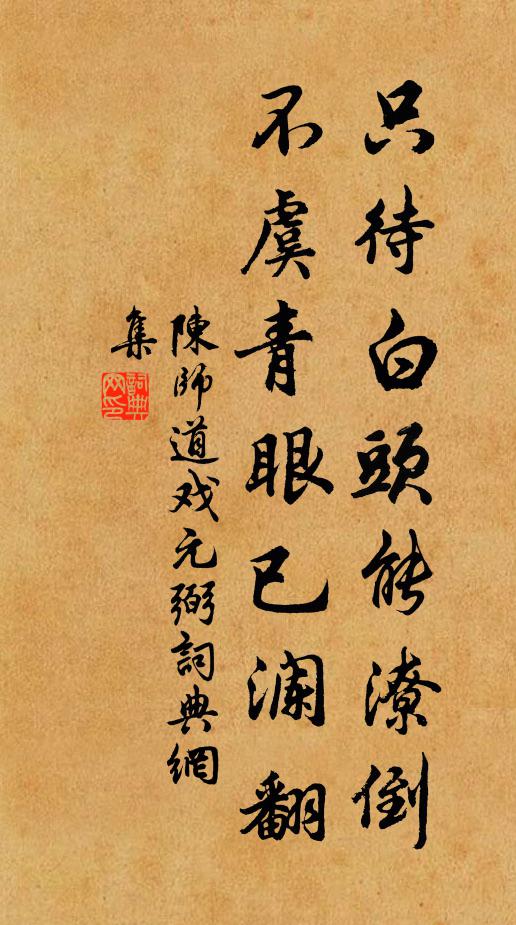 只待白頭能潦倒
不虞青眼已瀾翻
陳師道戏元弼詞典網
集
詞典
网印